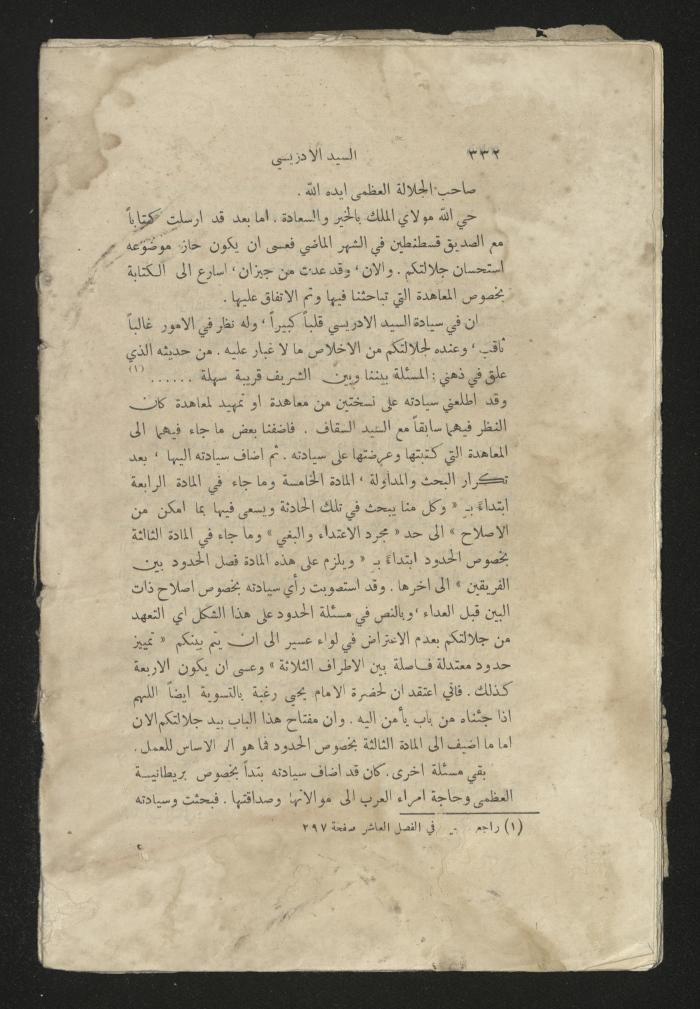 ٣٣٢
السيد الادريسي
صاحب الجلالة العظمى ايده الله .
حي الله مولاي الملك بالخير والسعادة . اما بعد قد ارسلت كتاباً
مع الصديق قسطنطين في الشهر الماضي فعسى ان يكون حاز موضوعه
استحسان جلالتكم . والان ، وقد عدت من جيزان ، اسارع الى الكتابة
بخصوص المعاهدة التي تباحثنا فيها وتم الاتفاق عليها .
ان في سيادة السيد الادريسي قلباً كبيراً ، وله نظر في الامور غالباً
ثاقب ، وعنده لجلالتكم من الاخلاص ما لا غبار عليه . من حديثه الذي
علق في ذهني : المسئلة بيننا وبين الشريف قريبة سهلة ...... (١)
وقد اطلعني سيادته على نسختين من معاهدة او تمهيد لمعاهدة كان
النظر فيهما سابقاً مع السيد السقاف . فاضفنا بعض ما جاء فيهما الى
المعاهدة التي كتبتها وعرضتها على سيادته . ثم اضاف سيادته اليها ، بعد
تكرار البحث والمداولة ، المادة الخامسة وما جاء في المادة الرابعة
ابتداءً بـ « وكل منا يبحث في تلك الحادثة ويسعى فيها بما امكن من
الاصلاح » الى حد « مجرد الاعتداء والبغي » وما جاء في المادة الثالثة
بخصوص الحدود ابتداءً بـ « ويلزم على هذه المادة فصل الحدود بين
الفريقين » الى اخرها . وقد استصوبت رأي سيادته بخصوص اصلاح ذات
البين قبل العداء ، وبالنص في مسئلة الحدود على هذا الشكل اي التعهد
من جلالتكم بعدم الاعتراض في لواء عسير الى ان يتم بينكم « تمييز
حدود معتدلة فاصلة بين الاطراف الثلاثة » وعسى ان يكون الاربعة
كذلك . فاني اعتقد ان لحضرة الامام يحيى رغبة بالتسوية ايضاً اللهم
اذا جئناه من باب يأمن اليه . وان مفتاح هذا الباب بيد جلالتكم الان
اما ما اضيف الى المادة الثالثة بخصوص الحدود فما هو الا الاساس للعمل .
بقي مسئلة اخرى . كان قد اضاف سيادته بنداً بخصوص بريطانية
العظمى وحاجة امراء العرب الى موالاتها وصداقتها . فبحثت وسيادته
(١) راجع في الفصل العاشر صفحة ٢٩٧